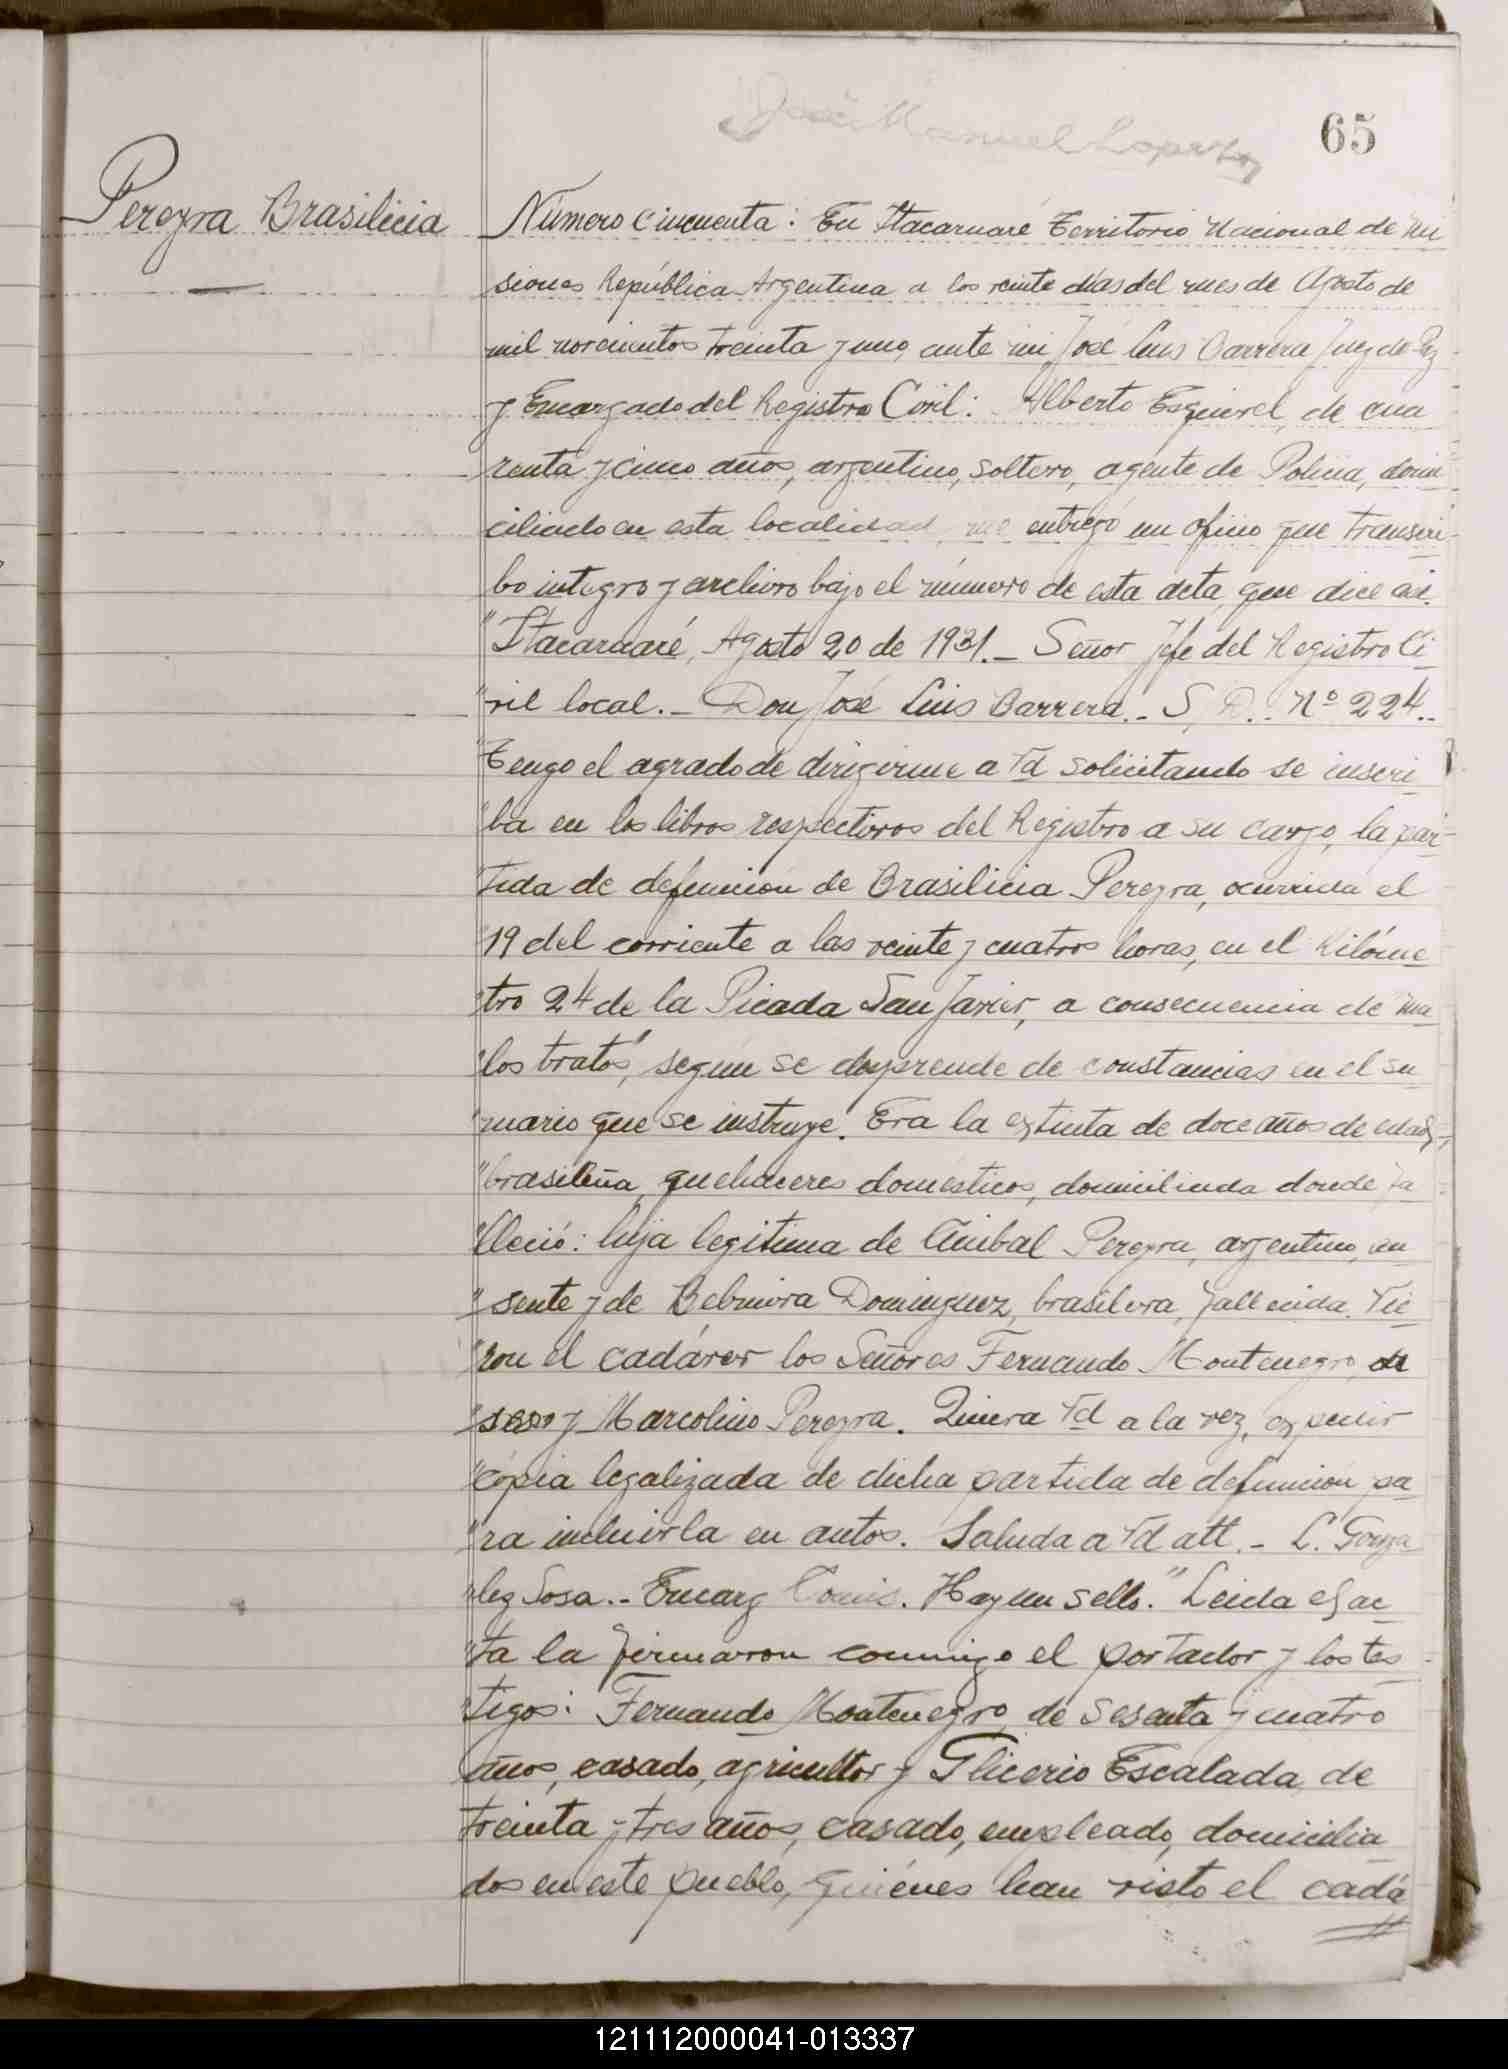 José Manuel Lopez
65
Pereyra Brasilicia
Número cincuenta: En Itacaruaré Territorio Nacional de Mi
siones República Argentina a los veinte días del mes de Agosto de
mil novecientos treinta y uno, ante mi José Luis Barrera Juez de Paz
y Encargado del Registro Civil: Alberto Esquivel, de cua
renta y cinco años, argentino, soltero, agente de Policia, domi
ciliado en esta localidad, me entregó un oficio que transcri
bo integro y archivo bajo el número de esta acta, que dice asi.
"Itacaruaré, Agosto 20 de 1931.- Señor Jefe del Registro Ci
"vil local.- Don José Luis Barrera.- S. D. Nº 224.-
"Tengo el agrado de dirigirme a Vd solicitando se inscri
"ba en los libros respectivos del Registro a su cargo, la par
"tida de defunción de Brasilicia Pereyra, ocurrida el
"19 del corriente a las veinte y cuatros horas, en el Kilóme
"tro 24 de la Picada San Javier, a consecuencia de "ma
"los tratos", según se desprende de constancias en el su
"mario que se instruye. Era la extinta de doce años de edad,
"brasileña, quehaceres domésticos, domiciliada donde fa
"lleció: hija legitima de Anibal Pereyra, argentino, au
"sente y de Belmira Dominguez, brasilera, fallecida. Vie
"ron el cadáver los Señores Fernando Montenegro,
y Marcolino Pereyra. Quiera Vd a la vez, expedir
"cópia legalizada de dicha partida de defunción pa
"ra incluirla en autos. Saluda a Vd att.- L. Gonza
"lez Sosa.- Encarg Comis. Hay un sello." Leida el ac
"ta la firmaron conmigo el portador y los tes
"tigos: Fernando Montenegro, de sesenta y cuatro
años, casado, agricultor y Glicerio Escalada, de
treinta y tres años, casado, empleado, domicilia
dos en este pueblo, quiénes han visto el cadá
121112000041-013337